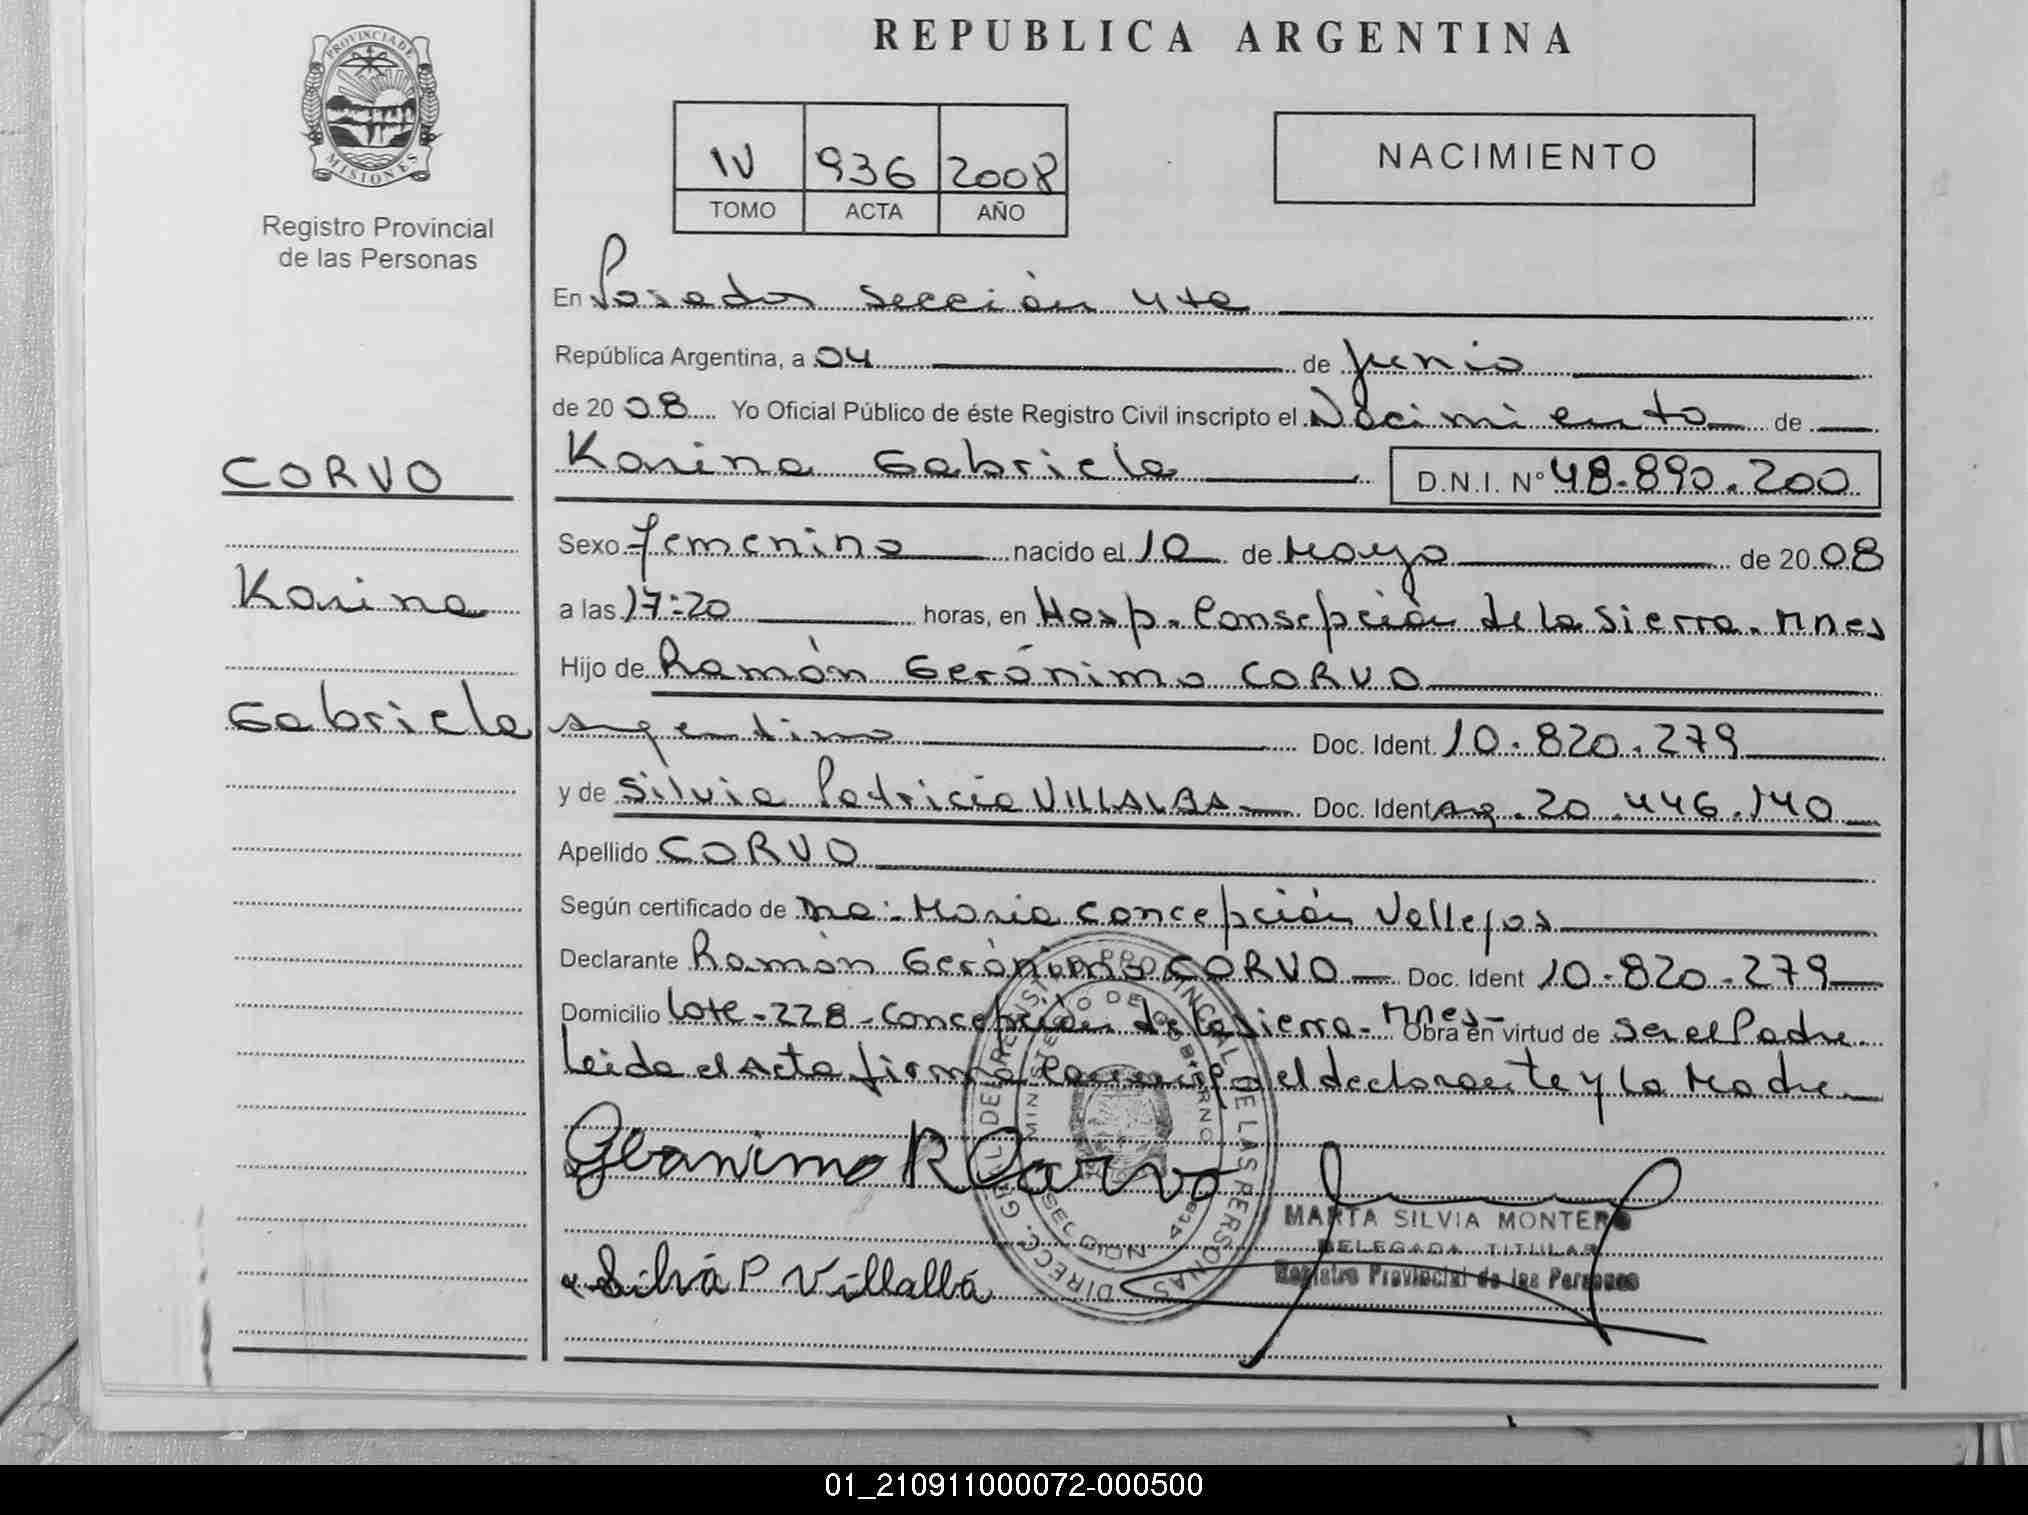 PROVINCIA DE
MISIONES
Registro Provincial
de las Personas
REPUBLICA ARGENTINA
IV 936 2008
TOMO ACTA AÑO
NACIMIENTO
En Posadas Sección 4ta
República Argentina, a 04 de Junio
de 2008 Yo Oficial Público de éste Registro Civil inscripto el Nacimiento de
Karina Gabriela D.N.I. N° 48.890.200
CORVO
Karina
Gabriela
Sexo femenino nacido el 10 de Mayo de 2008
a las 17:20 horas, en Hosp. Consepción de la Sierra. Mnes
Hijo de Ramón Gerónimo CORVO
Argentino Doc. Ident. 10.820.279
y de Silvia Patricia VILLALBA Doc. Ident Arg. 20.446.140
Apellido CORVO
Según certificado de María Concepción Vallejos
Declarante Ramón Gerónimo CORVO Doc. Ident 10.820.279
Domicilio Lote-228-Concepción de la Sierra-Mnes- Obra en virtud de Ser el Padre.
Leida el Acta firma Conmigo el declarante y la Madre
DIRECC. GRAL. DEL REGISTRO PROVINCIAL DE LAS PERSONAS
MINISTERIO DE GOBIERNO
SECCION 4ta
R Corvo
Silvia P Villalba
MARTA SILVIA MONTERO
DELEGADA TITULAR
Registro Provincial de las Personas
01_210911000072-000500